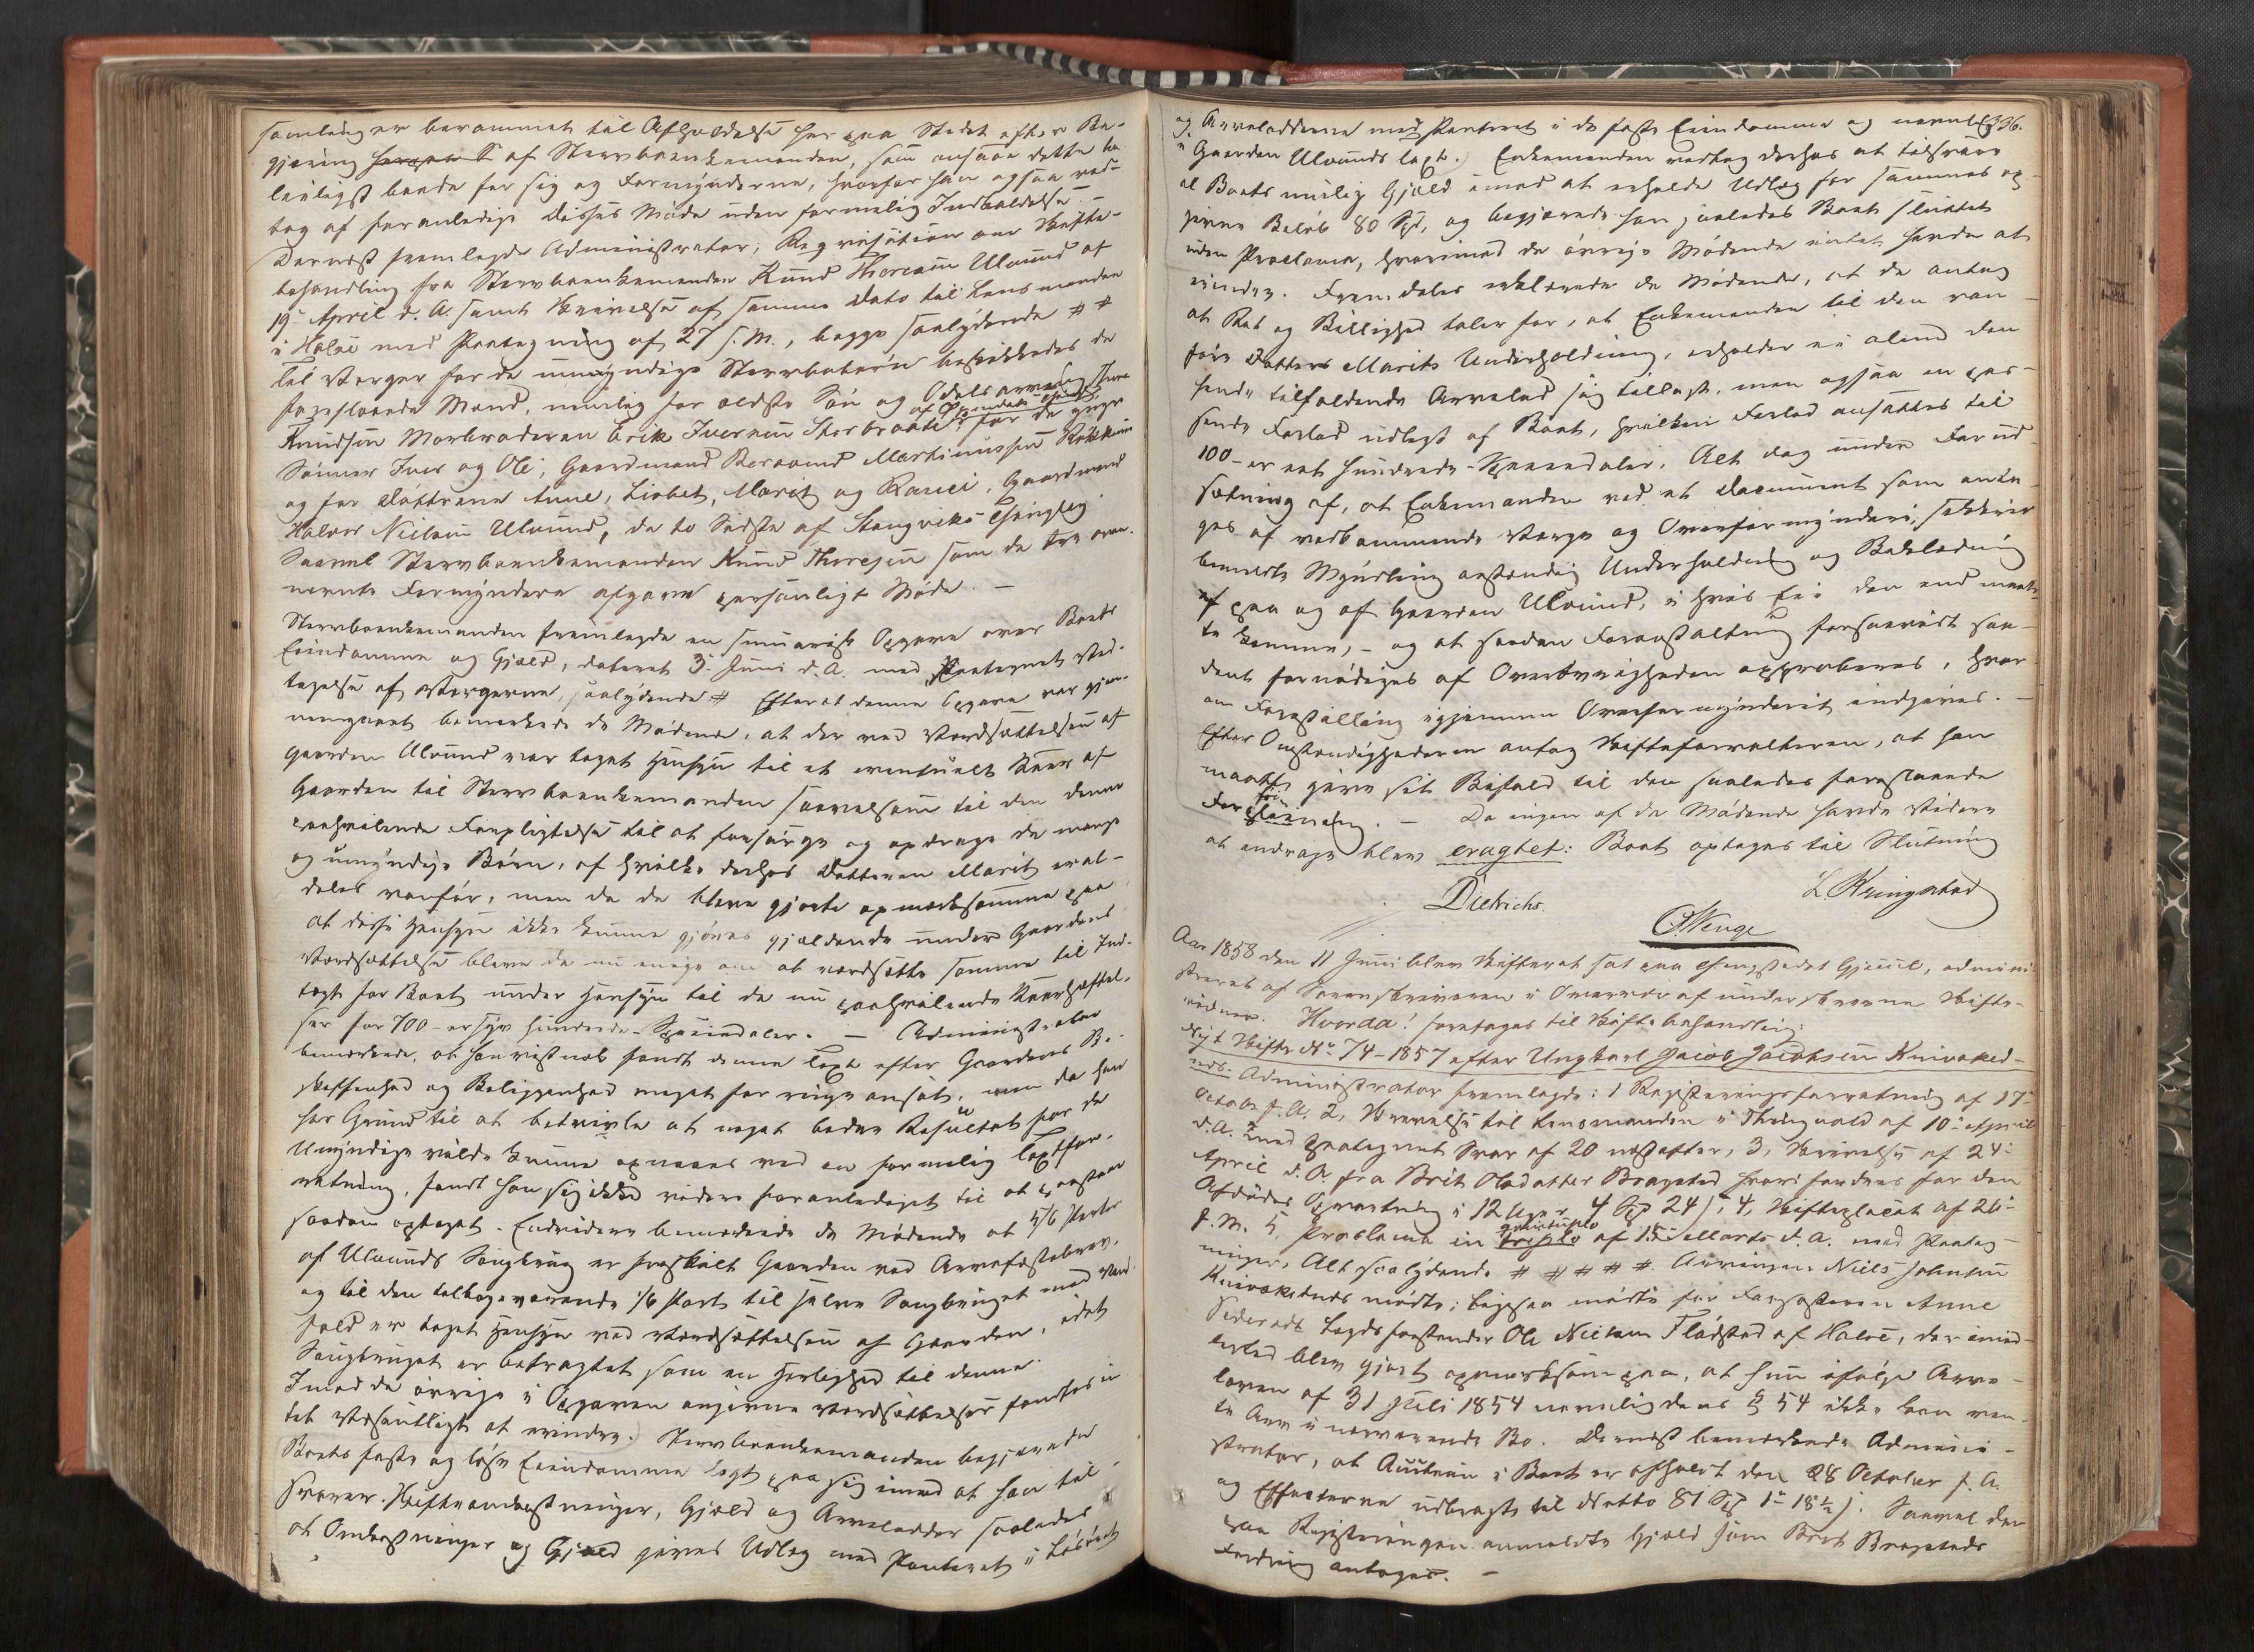 samling er berammet til Afholdelse her paa Stedet efter Be-
gjæring af Stervboenkemanden, som ansaae dette be
leiligst baade for sig og Formynderne, hvorfor han ogsaa ved-
tog at foranledige Disses Møde uden formelig Indkaldelse. -
Dernæst fremlagde Administrator, Reqvisition om Skifte-
behandling fra Stervboenkemanden Knud Thoresen Ulvund af
19de April d. A. samt Skrivelse af samme Dato til Lensmanden
i Halse med Paategning af 27 s. M., begge saalydende # #
Til Værger for de umyndige Stervbobørn beskikkedes de
foreslaaede Mænd, nemlig for ældste Søn og Odelsarving Thore
Knudsen Morbroderen Erik Iversen Storbraate, for de yngre
Sønner Iver og Ole, Gaardmand Beraand Martinussen Røkkum
og for Døttrene Anne, Lisbet, Marit og Ranei, Gaardmand
Halvor Nielsen Ulvund, de to Sidste af Stangviks Thinglag
Saavel Stervboenkemanden Knud Thoresen som de tre oven-
nævnte Formyndere afgave personligt Møde. -
Stervboenkemanden fremlagde en summarisk Opgave over Boets
Eiendomme og Gjæld, dateret 3de Juni d. A. med paategnet Ved-
tagelse af Værgerne, saalydende # Efterat denne Opgave var gjen-
nemgaaet bemærkede de Mødende, at der ved Værdsættelsen af
Gaarden Ulvund var taget Hensyn til et eventuelt Kaar af
Gaarden til Stervboenkemanden saavelsom til den denne
paahvilende Forpligtelse til at forsørge og opdrage de mange
og umyndige Børn, af hvilke derhos Datteren Marit er al-
deles vanfør, men da de bleve gjorte opmærksomme paa
at disse Hensyn ikke kunne gjøres gjældende under Gaardens
Værdsættelse bleve de nu enige om at værdsætte samme til Ind-
tægt for Boet under Hensyn til de nu paahvilende Kaarheftel-
ser for 700 - er syv hundrede - Speciedaler. - Administrator
bemærkede, at han vistnok fandt denne Taxt efter Gaardens Be-
skaffenhed og Beliggenhed meget for ringe ansat, men da han
har Grund til at betvivle at noget bedre Resultat for de
Umyndige vilde kunne opnaaes ved en formelig Taxtfor-
retning, fandt han sig ikke videre foranlediget til at paastaae
saadan optaget. Endvidere bemærkede de Mødende at 5/6 Parter
af Ulvunds Saugbrug er fraskilt Gaarden ved Arvefæstebrev,
og til den tilbageværende 1/6 Part til halve Saugbruget med Vand
fald er taget Hensyn ved Værdsættelsen af Gaarden, idet
Saugbruget er betragtet som en Herlighed til denne.
Imod de øvrige i Opgaven angivne Værdsættelser fandtes in
tet Væsentligt at erindre. Stervboenkemanden begjærede
Boets faste og løse Eiendomme lagt paa sig imod at han til-
svarer Skifteomkostninger, Gjæld og Arvelodder saaledes
at Omkostninger og Gjæld gives Udlæg med Panteret i Løsøret
336.
og Arvelodderne med Panteret i de faste Eiendomme og navnlig
i Gaarden Ulvunds Taxt. Enkemanden vedtog derhos at tilsvare
al Boets mulig Gjæld imod at erholde Udlæg for sammes op-
givne Beløb 80 Spd, og begjærede han saaledes Boet sluttet
uden Proclama, hvorimod de øvrige Mødende intet havde at
erindre. Fremdeles erklærede de Mødende, at de antog
at Ret og Billighed taler for, at Enkemanden til den van-
føre Datters Marits Underholdning, erholder ei alene den
hende tilfaldende Arvelod sig tillagt, men ogsaa en pas-
sende Forlod udlagt af Boet, hvilken Forlod ansattes til
100 - er eet hundrede - Speciedaler. Alt dog under Forud-
sætning af, at Enkemanden ved et Document som anta-
ges af vedkommende Værge og Overformynderi, sikkrer
bemeldte Myndling anstændig Underholdning og Beklædning
paa og af Gaarden Ulvund, i hvis Eie den end maat-
te komme, - og at saadan Foranstaltning forsaavidt saa-
dant fornødiges af Overøvrigheden approberes, hvor-
om Forestilling igjennem Overformynderiet indgives. -
Efter Omstændighederne antog Skifteforvalteren, at han
maatte give sit Bifald til den saaledes foreslaaede
Forening. - Da ingen af de Mødende havde Videre
at andrage blev eragtet: Boet optages til Slutning
Dietrichs. L Kringstad
O. Wenge
Aar 1858 den 11 Juni blev Skifteret sat paa Thingstedet Gjøul, admini-
streret af Sorenskriveren i Overvær af underskrevne Skifte-
vidner. Hvorda! foretages til Skiftebehandling:
Nyt Skifte No 74 - 1857 efter Ungkarl Jacob Jacobsen Knivsked-
nds. Administrator fremlagde: 1 Registeringsforretning af 17de
October f. A. 2, Skrivelse til Lensmanden i Thingvold af 10de April
d. A. med paategnet Svar af 20 næstefter, 3, Skrivelse af 24de
April d. A. fra Brit Olsdatter Bragstad hvori fordres for den
Afdødes Opvartning i 12 Uger 4 Spd 24 s, 4, Skifteplacat af 26de
f. M. 5, Proclama in qvintuplo af 15de Marts d. A. med Paateg-
ninger, Alt saalydende # # # # #. Arvingen Niels Johnsen
Knivskednds mødte; ligesaa mødte for Farsøsteren Anne
Pedersdt Lægdsforstander Ole Nielsen Flødstad af Halse, der imid-
lertid blev gjort opmærksom paa, at hun ifølge Arve-
loven af 31 Juli 1854 navnlig dens § 54 ikke kan ven-
te Arv i nærværende Bo. Dernæst bemærkede Admini-
strator, at Auction i Boet er afholdt den 28 October f. A.
og Effecterne udbragt til Netto 81 Spd 1 - 18½ s. Saavel den
paa Registeringen anmeldte Gjæld som Brit Bragstads
Fordring antoges. -